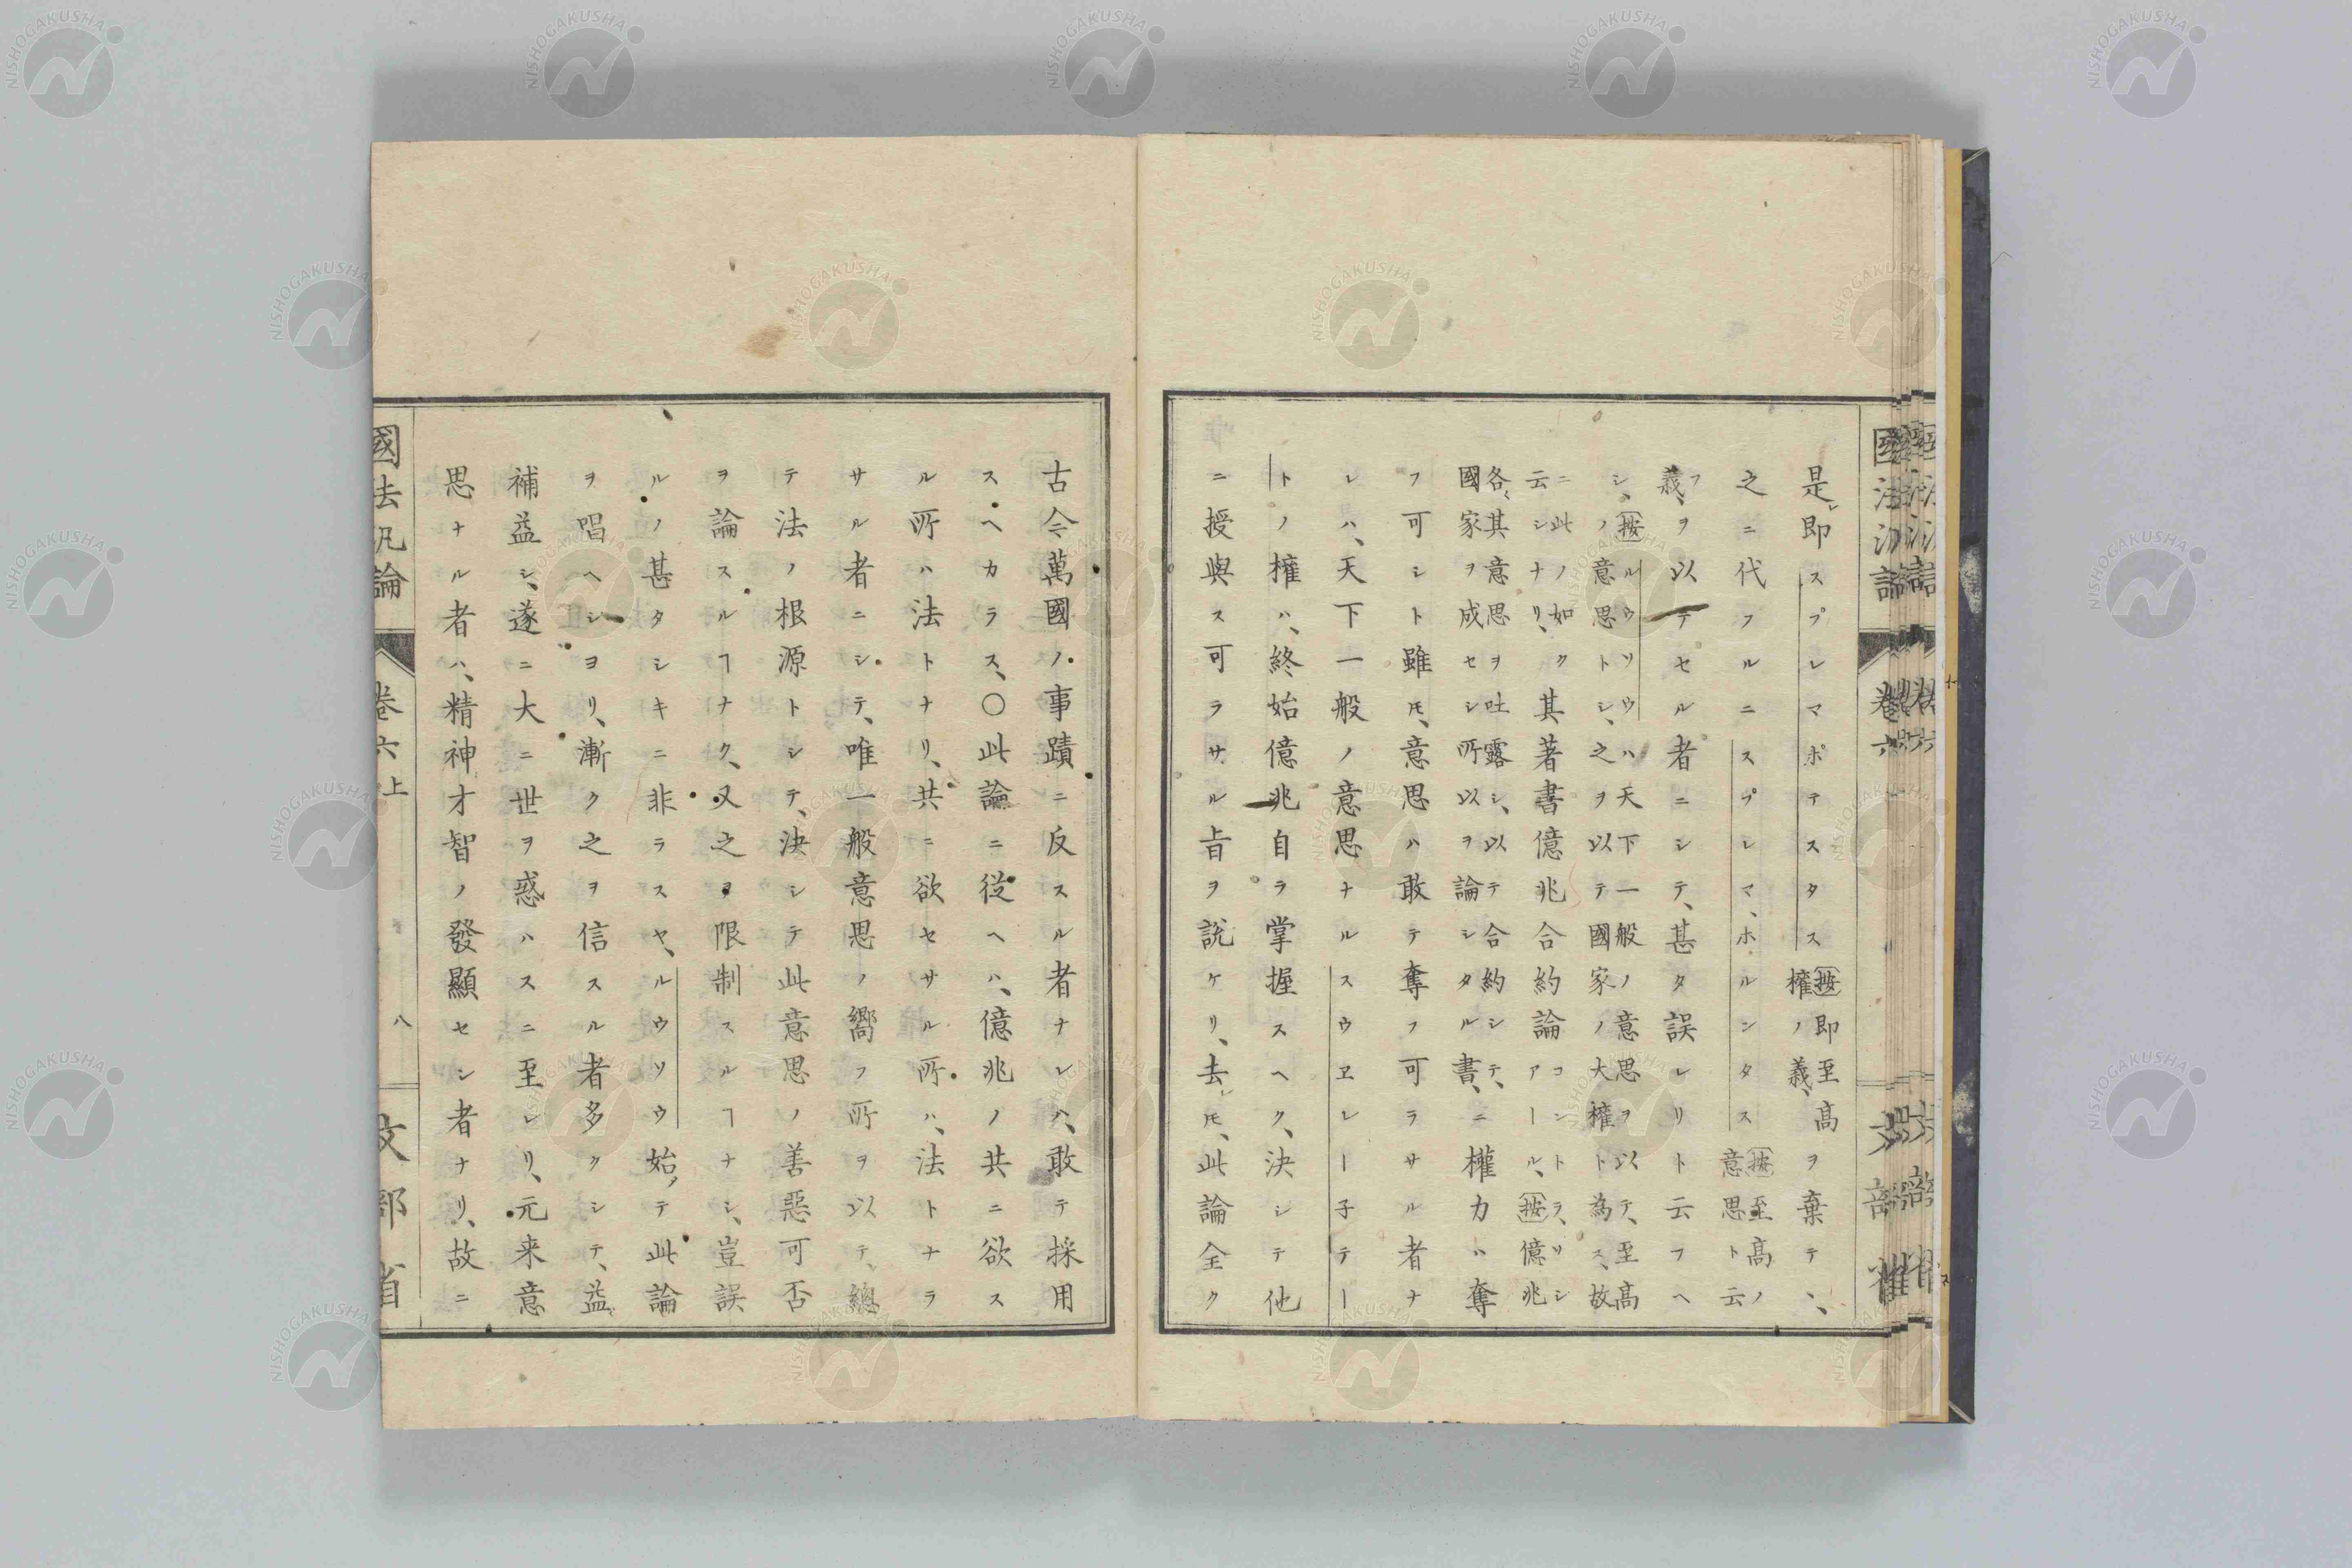 是レ即スプレマポテスタス 按即至高權ノ義、ヲ棄テヽ、
之ニ代フルニスプレマ、ホルンタス 按至高ノ意思ト云
フ義、ヲ以テセル者ニシテ、甚タ誤レリト云フヘ
シ、按ルウソウハ天下一般ノ意思ヲ以テ、至高ノ意思トシ、之ヲ以テ國家ノ大權ト為ス、故
ニ此ノ如ク云シナリ、其著書億兆合約論コントラソシアール、按億兆
各、其意思ヲ吐露シ、以テ合約シテ、國家ヲ成セシ所以ヲ論シタル書、ニ權力ハ奪
フ可シト雖モ、意思ハ敢テ奪フ可ラサル者ナ
レハ、天下一般ノ意思ナルスウヱレーネテー
トノ權ハ、終始億兆自ラ掌握スヘク、決シテ他
ニ授與ス可ラサル旨ヲ説ケリ、去レモ、此論全ク
國法汎論
卷六
古今萬國ノ事蹟ニ反スル者ナレハ、敢テ採用
スヘカラス、〇此論ニ從ヘハ、億兆ノ共ニ欲ス
ル所ハ法トナリ、共ニ欲セサル所ハ、法トナラ
サル者ニシテ、唯一般意思ノ嚮フ所ヲ以テ、總
テ法ノ根源トシテ、決シテ此意思ノ善惡可否
ヲ論スルヿナク、又之ヲ限制スルヿナシ、豈誤
ルノ甚タシキニ非ラスヤ、ルウソウ始メテ此論
ヲ唱ヘシヨリ、漸ク之ヲ信スル者多クシテ、益
補益シ、遂ニ大ニ世ヲ惑ハスニ至レリ、元来意
思ナル者ハ、精神才智ノ發顯セシ者ナリ、故ニ
國法汎論
卷六上
八
文部省
NISHOGAKUSHA